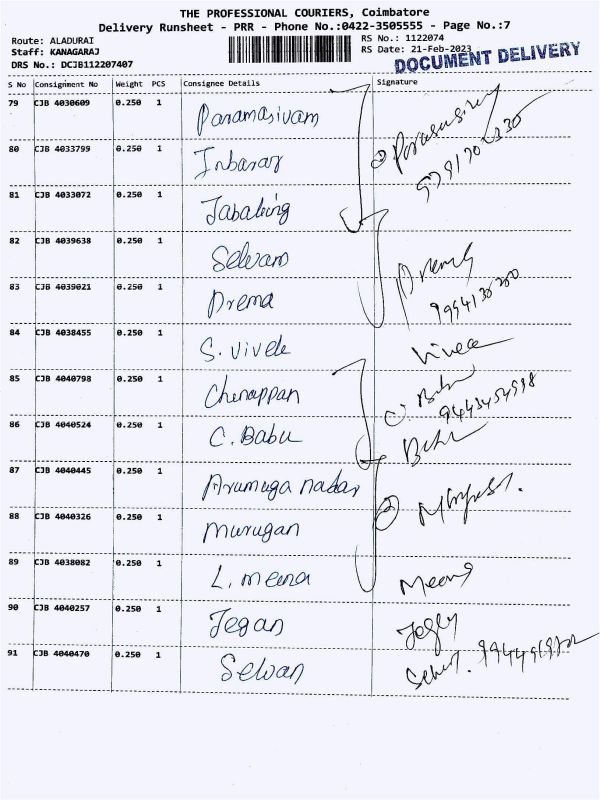 THE PROFESSIONAL COURIERS, Coimbatore
Delivery Runsheet - PRR - Phone No.:0422-3505555 - Page No.:7
Route: ALADURAI RS No.: 1122074
Staff: KANAGARAJ RS Date: 21-Feb-2023
DRS No.: DCJB112207407 DOCUMENT DELIVERY
S No Consignment No Weight PCS Consignee Details Signature
79 CJB 4030609 0.250 1 Paramasivam
80 CJB 4033799 0.250 1 Inbaraj
81 CJB 4033072 0.250 1 Jabaking
82 CJB 4039638 0.250 1 Selvam
83 CJB 4039021 0.250 1 Prema Prema
84 CJB 4038455 0.250 1 S. Vivek Vivek
85 CJB 4040798 0.250 1 Chenappan
86 CJB 4040524 0.250 1 C. Babu
87 CJB 4040445 0.250 1 Arumuga nadar
88 CJB 4040326 0.250 1 Murugan
89 CJB 4038082 0.250 1 L. meena Meena
90 CJB 4040257 0.250 1 Jegan
91 CJB 4040470 0.250 1 Selvan